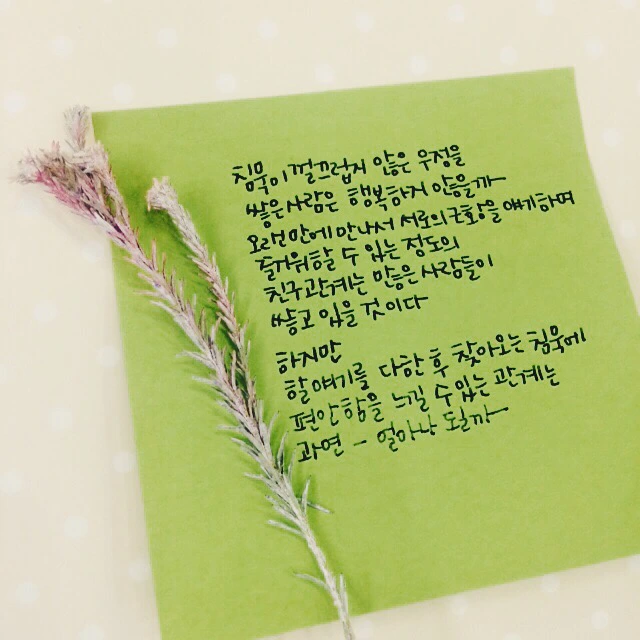 침묵이 껄끄럽지 않은 우정을
쌓은 사람은 행복하지 않을까
오랜만에 만나서 서로의 근황을 얘기하며
즐거워할 수 있는 정도의
친구관계는 많은 사람들이
쌓고 있을 것이다
하지만
할 얘기를 다한 후 찾아오는 침묵에
편안함을 느낄 수 있는 관계는
과연 - 얼마나 될까